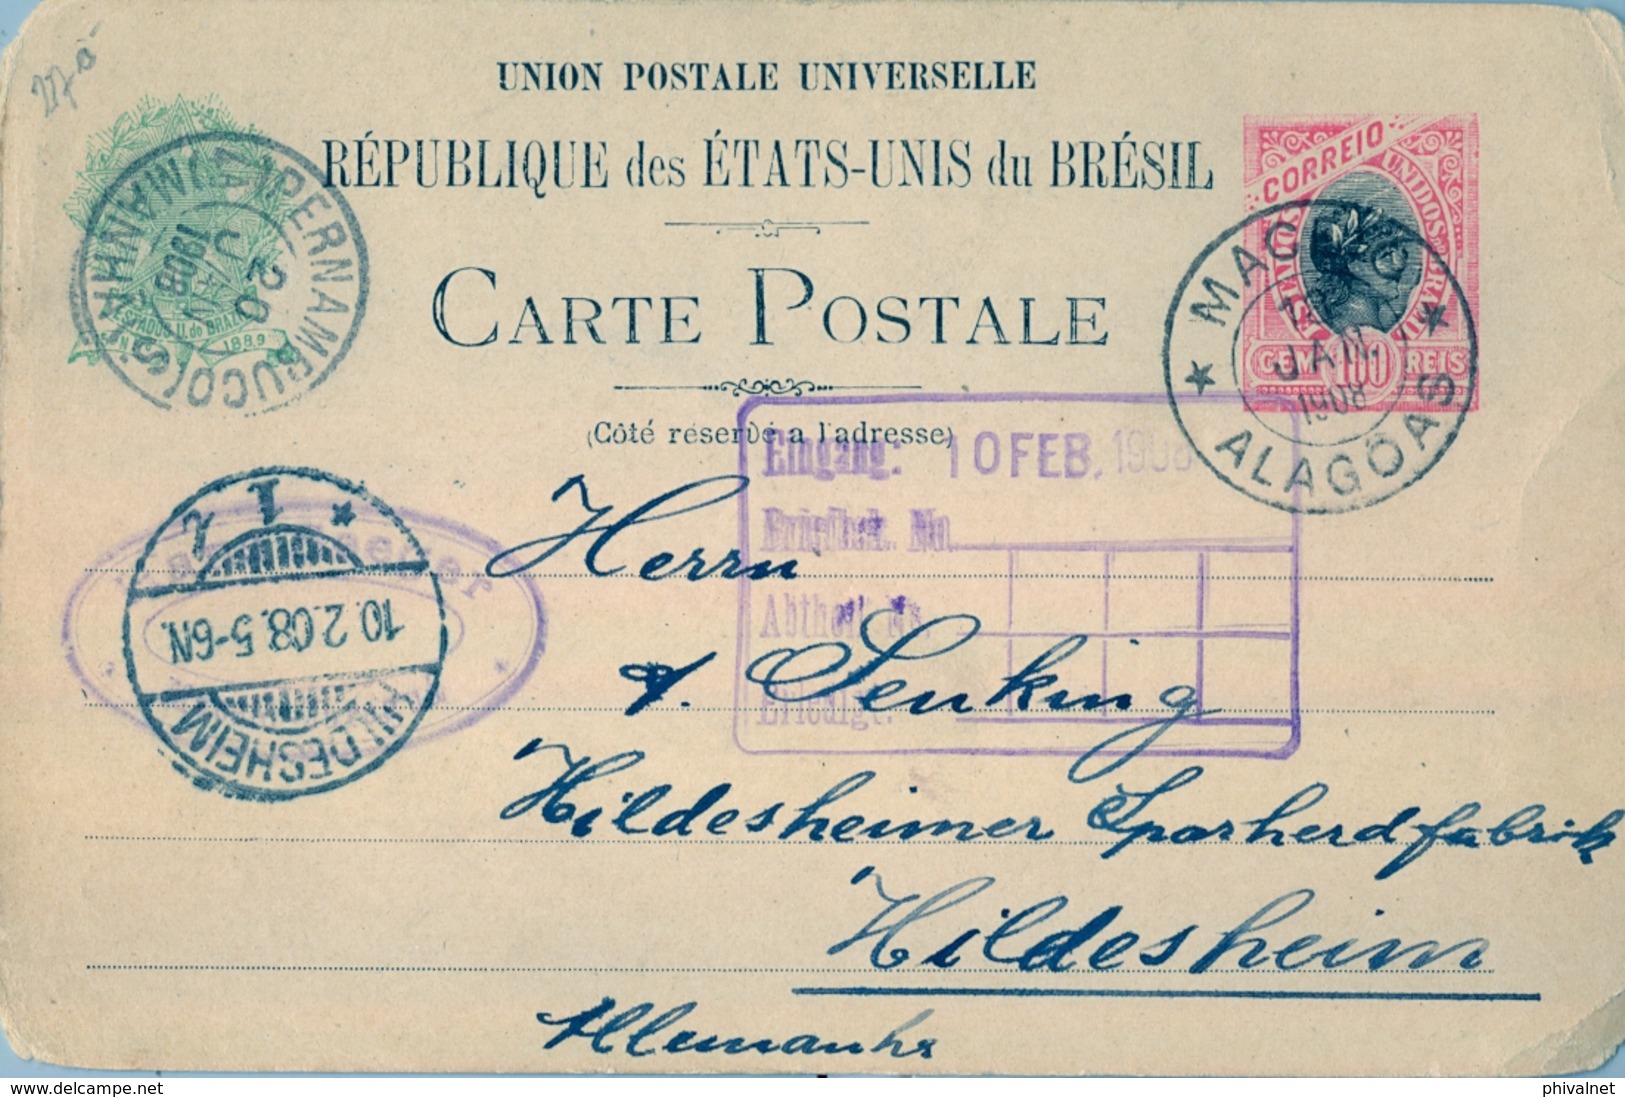 UNION POSTALE UNIVERSELLE
RÉPUBLIQUE des ÉTATS-UNIS du BRÉSIL
CARTE POSTALE
(Côté réservé a l'adresse)
CORREIO
ESTADOS UNIDOS DO BRAZIL
CEM 100 REIS
MACEIO
JAN.
1908
ALAGÔAS
PERNAMBUCO
1908
ESTADOS U. do BRAZIL
1889
Eingang: 10 FEB. 1908
Briefbch. No.
Abtheil. No.
Erledigt:
1
10.2.08.5-6N.
HILDESHEIM
Herrn
Senking
Hildesheimer Sparherdfabrik
Hildesheim
phivalnet
delcampe.net